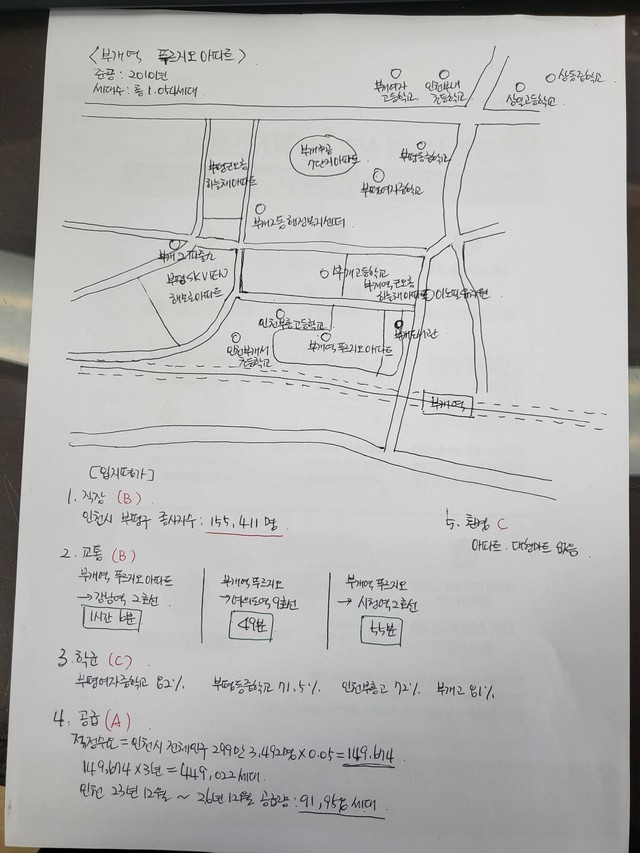 <부개역 푸르지오 아파트>
준공 : 2010년
세대수 : 총 1.054세대
부개여자
고등학교
인천부내
초등학교
상일고등학교
상동중학교
부개주공
7단지아파트
부평동중학교
부평여자중학교
부평코오롱
하늘채아파트
부개2동행정복지센터
부개2파출소
부평SKVIEW
해모로아파트
부개고등학교
부개역코오롱
하늘채아파트
인천부흥고등학교
부개도서관
인천부개서
초등학교
부개역 푸르지오 아파트
부개역
[입지평가]
1. 직장 (B)
인천시 부평구 종사자수 : 155,411 명
5. 환경 C
아파트. 대형마트 없음
2. 교통 (B)
부개역 푸르지오 아파트
→강남역 2호선
1시간 6분
부개역 푸르지오
→여의도역 9호선
49분
부개역 푸르지오
→ 시청역 2호선
55분
3. 학군 (C)
부평여자중학교 82% 부평동중학교 71.5% 인천부흥고 72% 부개고 81%
4. 공급 (A)
적정수요 = 인천시 전체인구 299만 3,492명 × 0.05 = 149,674
149,674 × 3년 = 449,022세대
인천 23년 12월 ~ 26년 12월 공급량 : 91,958 세대